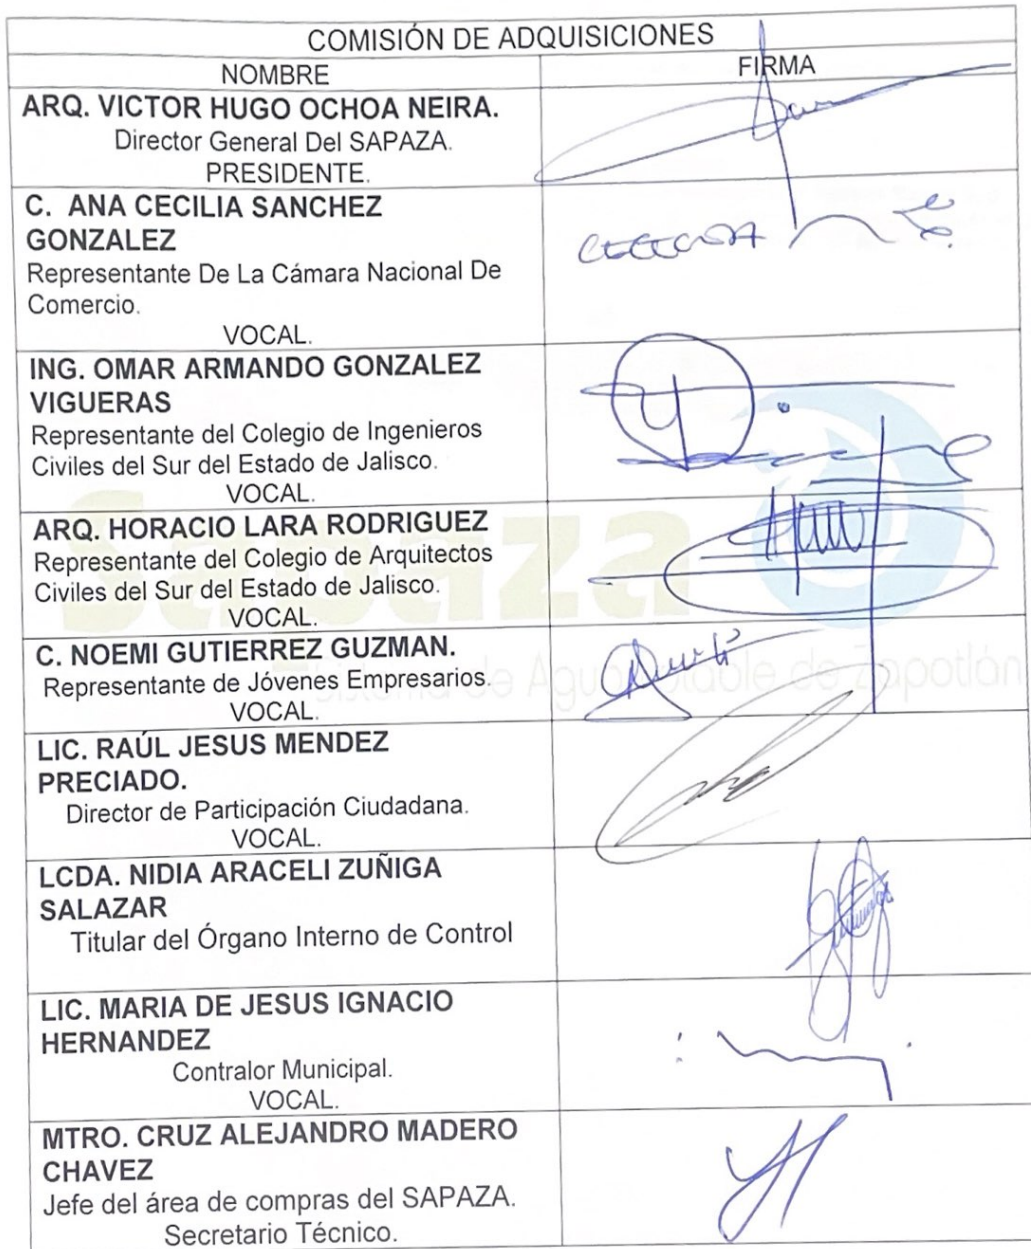 COMISIÓN DE ADQUISICIONES
NOMBRE FIRMA
ARQ. VICTOR HUGO OCHOA NEIRA.
Director General Del SAPAZA.
PRESIDENTE.
C. ANA CECILIA SANCHEZ
GONZALEZ
Representante De La Cámara Nacional De
Comercio.
VOCAL.
ING. OMAR ARMANDO GONZALEZ
VIGUERAS
Representante del Colegio de Ingenieros
Civiles del Sur del Estado de Jalisco.
VOCAL.
ARQ. HORACIO LARA RODRIGUEZ
Representante del Colegio de Arquitectos
Civiles del Sur del Estado de Jalisco.
VOCAL.
C. NOEMI GUTIERREZ GUZMAN.
Representante de Jóvenes Empresarios.
VOCAL.
LIC. RAÚL JESUS MENDEZ
PRECIADO.
Director de Participación Ciudadana.
VOCAL.
LCDA. NIDIA ARACELI ZUÑIGA
SALAZAR
Titular del Órgano Interno de Control
LIC. MARIA DE JESUS IGNACIO
HERNANDEZ
Contralor Municipal.
VOCAL.
MTRO. CRUZ ALEJANDRO MADERO
CHAVEZ
Jefe del área de compras del SAPAZA.
Secretario Técnico.
Sapaza
Sistema de Agua Potable de Zapotlán